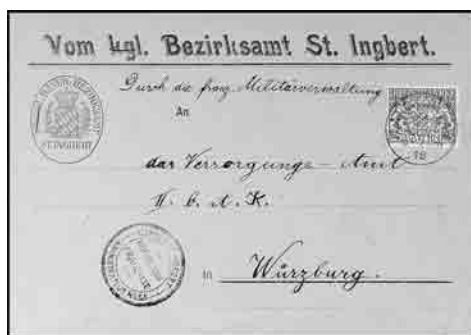 Vom kgl. Bezirksamt St. Ingbert.
Durch die franz. Militärverwaltung
An
das Versorgungs-Amt
II. b. A. K.
in Würzburg.
ST. INGBERT